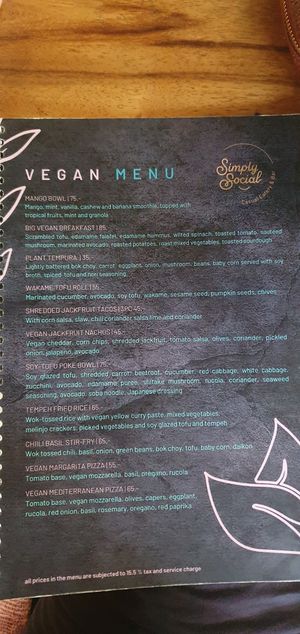 Simply
Social
Casual Eatery & Bar
VEGAN MENU
MANGO BOWL | 75.-
Mango, mint, vanilla, cashew and banana smoothie, topped with
tropical fruits, mint and granola
BIG VEGAN BREAKFAST | 85.-
Scrambled tofu, edamame falafel, edamame hummus, wilted spinach, toasted tomato, sauteed
mushroom, marinated avocado, roasted potatoes, roast mixed vegetables, toasted sourdough
PLANT TEMPURA | 35.-
Lightly battered bok choy, carrot, eggplant, onion, mushroom, beans, baby corn served with soy
broth, spiced tofu and nori seasoning
WAKAME TOFU ROLL | 55.-
Marinated cucumber, avocado, soy tofu, wakame, sesame seed, pumpkin seeds, chives
SHREDDED JACKFRUIT TACOS (3PC) 45.-
With corn salsa, slaw, chili coriander salsa, lime and coriander
VEGAN JACKFRUIT NACHOS | 45.-
Vegan cheddar, corn chips, shredded jackfruit, tomato salsa, olives, coriander, pickled
onion, jalapeno, avocado
SOY-TOFU POKE BOWL | 75.-
Soy glazed tofu, shredded, carrot, beetroot, cucumber, red cabbage, white cabbage,
zucchini, avocado, edamame puree, shiitake mushroom, rucola, coriander, seaweed
seasoning, avocado, soba noodle, Japanese dressing
TEMPEH FRIED RICE | 65.-
Wok-tossed rice with vegan yellow curry paste, mixed vegetables,
melinjo crackers, pickled vegetables and soy glazed tofu and tempeh
CHILI BASIL STIR-FRY | 65.-
Wok tossed chili, basil, onion, green beans, bok choy, tofu, baby corn, daikon
VEGAN MARGARITA PIZZA | 55.-
Tomato base, vegan mozzarella, basil, oregano, rucola
VEGAN MEDITERRANEAN PIZZA | 65.-
Tomato base, vegan mozzarella, olives, capers, eggplant,
rucola, red onion, basil, rosemary, oregano, red paprika
all prices in the menu are subjected to 15.5 % tax and service charge